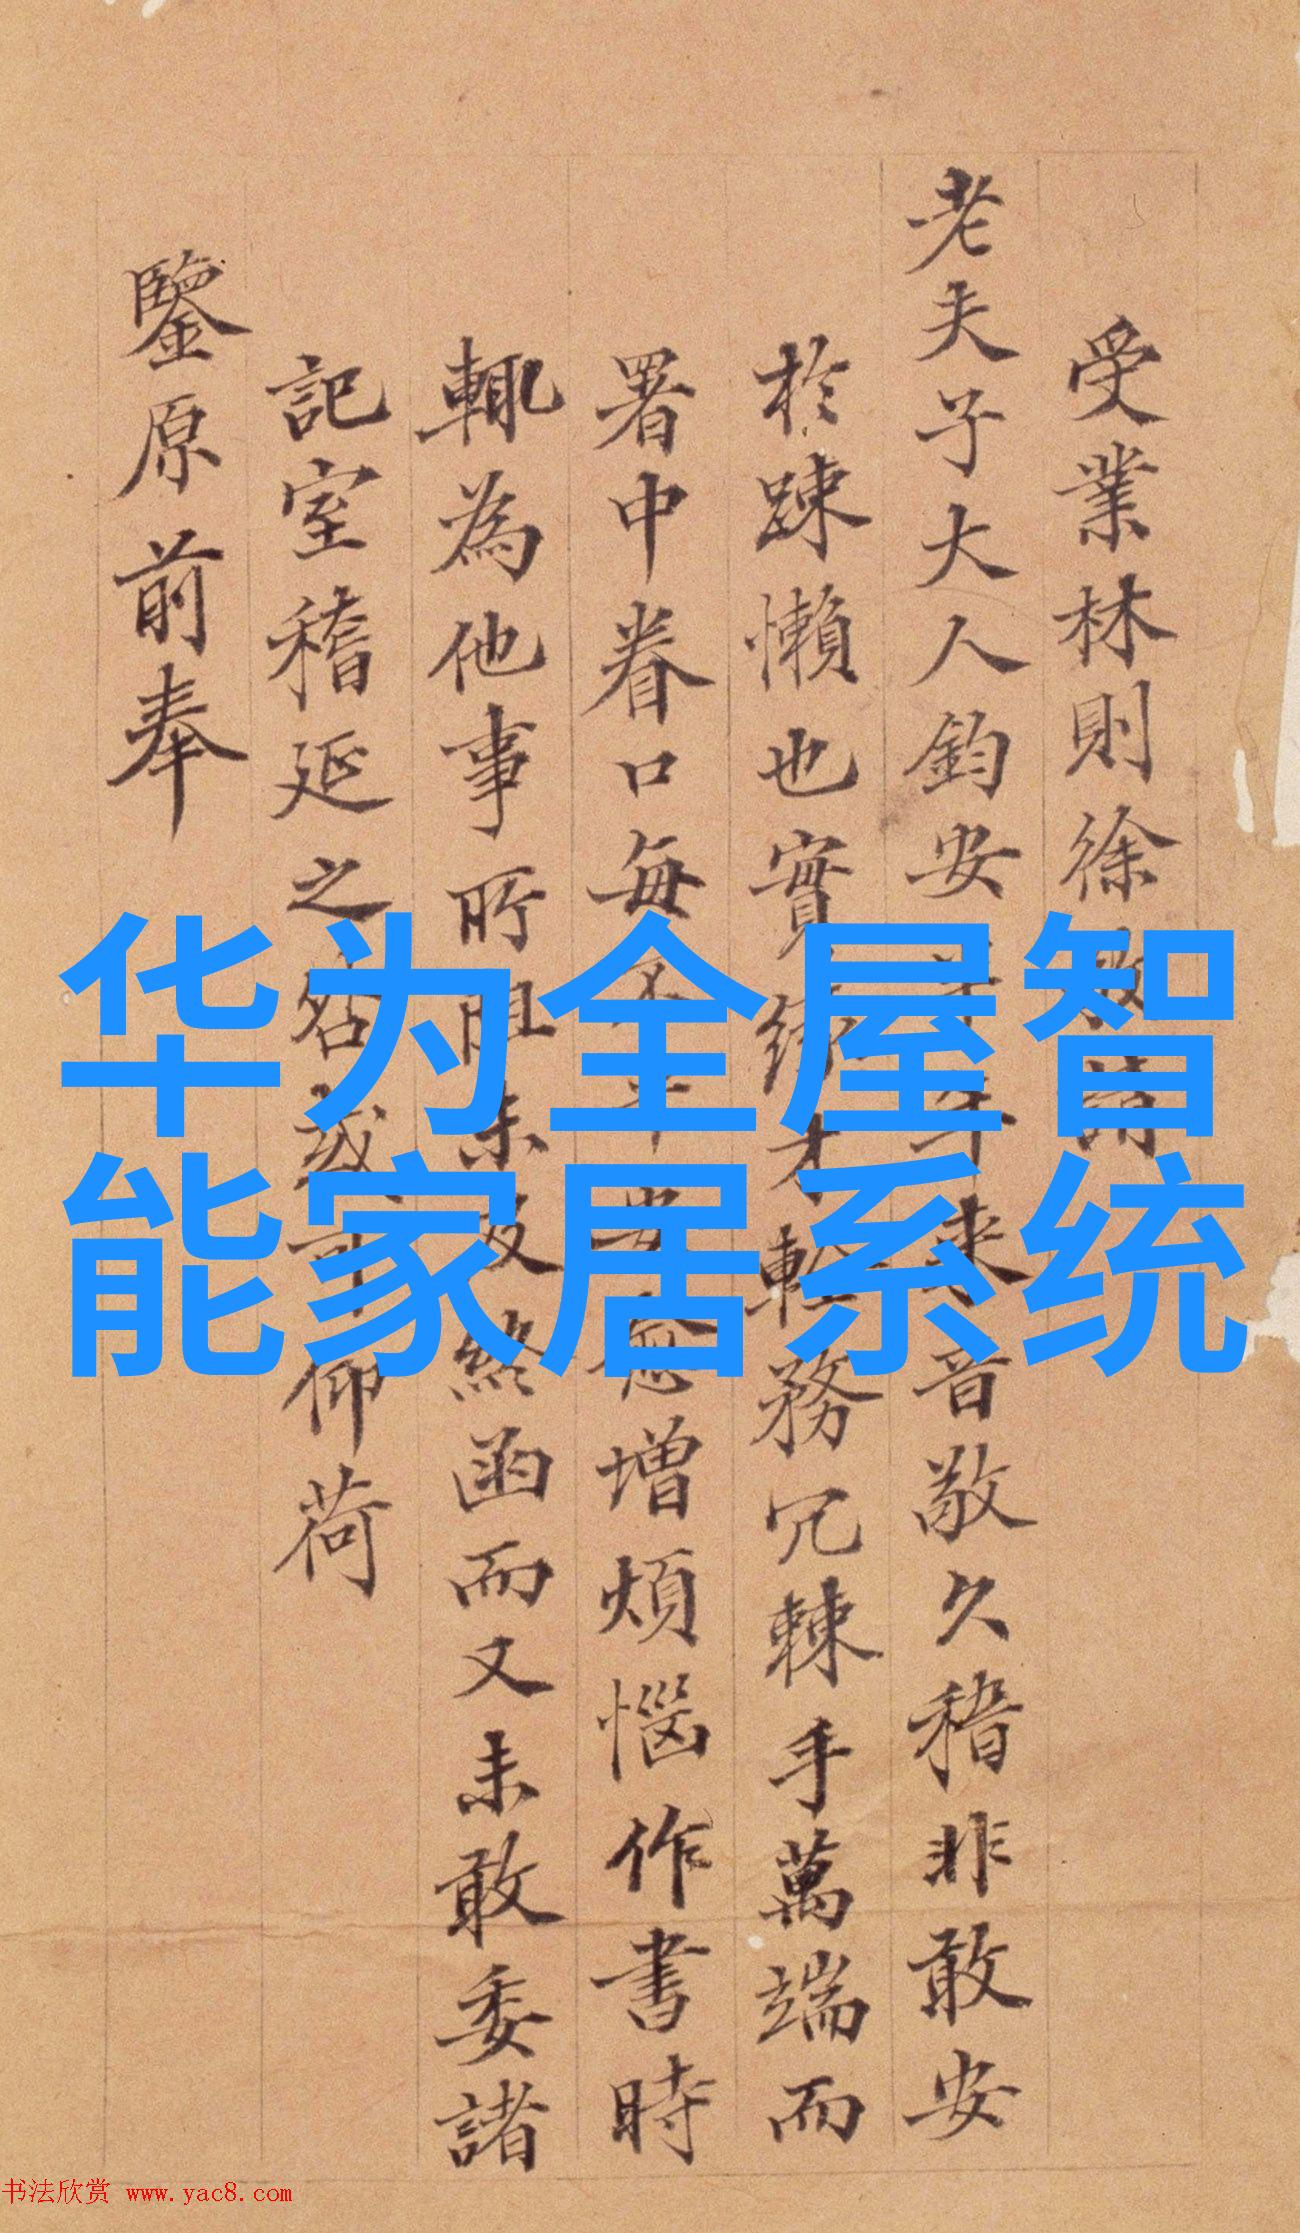 受業林則徐敬請
老夫子大人鈞安年來音敬久稽非敢安
於踈懶也實緣才輇務冗棘手萬端而
署中眷口每不平安愈增煩惱作書時
輒為他事所阻未及終函而又未敢委諸
記室稽延之咎或可仰荷
鑒原前奉
华为全屋智
能家居系统
书法欣赏 www.yac8.com